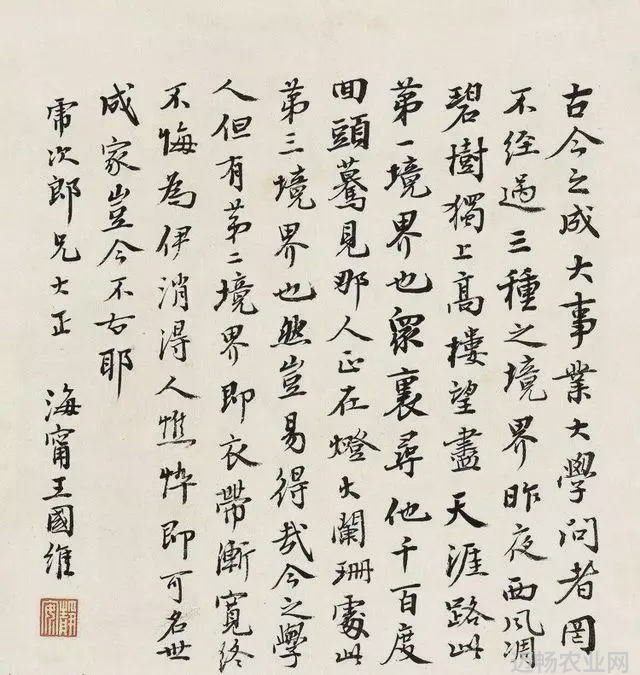 古今之成大事業大學问者罔
不经過三種之境界昨夜西风凋
碧樹獨上高樓望盡天涯路此
第一境界也眾裏尋他千百度
回頭驀見那人正在燈火闌珊處此
第三境界也然豈易得哉今之學
人但有第二境界即衣帶漸寬终
不悔為伊消得人憔悴即可名世
成家豈今不古耶
虎次郎兄大正 海甯王國維
迈畅农业网